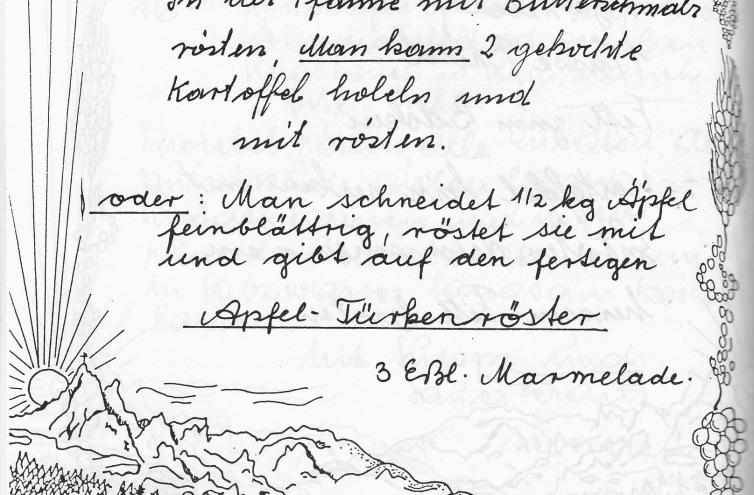 in der Pfanne mit Butterschmalz
rösten, Man kann 2 gekochte
Kartoffel hobeln und
mit rösten.
oder : Man schneidet 1/2 kg Äpfel
feinblättrig, röstet sie mit
und gibt auf den fertigen
Apfel-Türkenröster
3 Eßl. Marmelade.